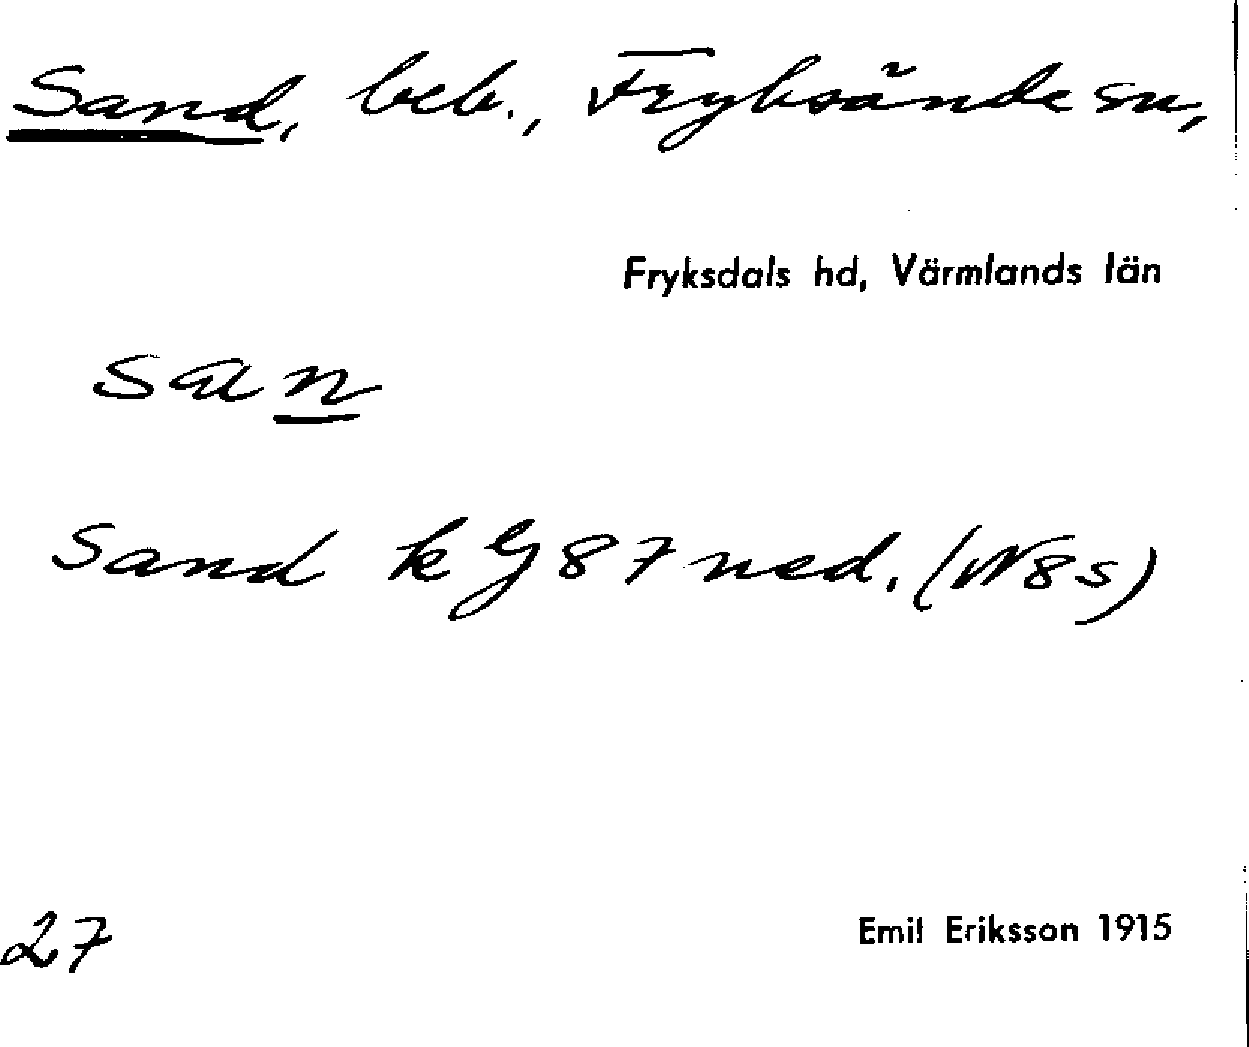 Sand, beb., Fryksände sn,
Fryksdals hd, Värmlands län
san
Sand k G 87 ned. (N 8 s)
27
Emil Eriksson 1915